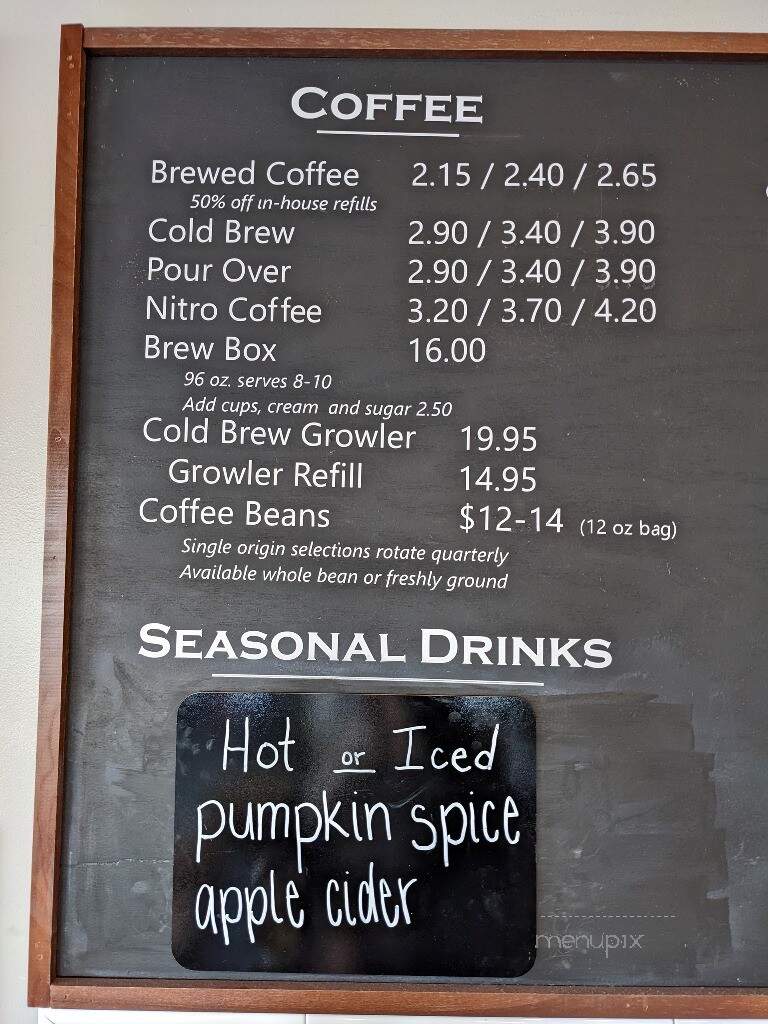 COFFEE
Brewed Coffee 2.15 / 2.40 / 2.65
50% off in-house refills
Cold Brew 2.90 / 3.40 / 3.90
Pour Over 2.90 / 3.40 / 3.90
Nitro Coffee 3.20 / 3.70 / 4.20
Brew Box 16.00
96 oz. serves 8-10
Add cups, cream and sugar 2.50
Cold Brew Growler 19.95
Growler Refill 14.95
Coffee Beans $12-14 (12 oz bag)
Single origin selections rotate quarterly
Available whole bean or freshly ground
SEASONAL DRINKS
Hot or Iced
pumpkin spice
apple cider
menupix